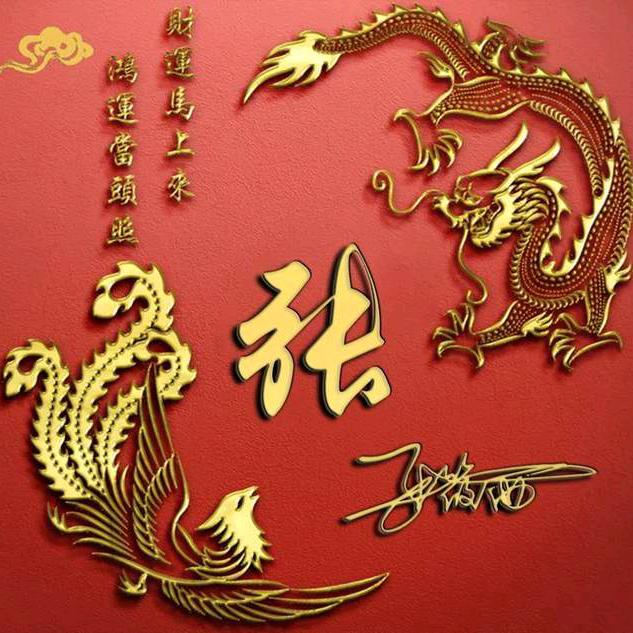 財運馬上來
鴻運當頭照
張